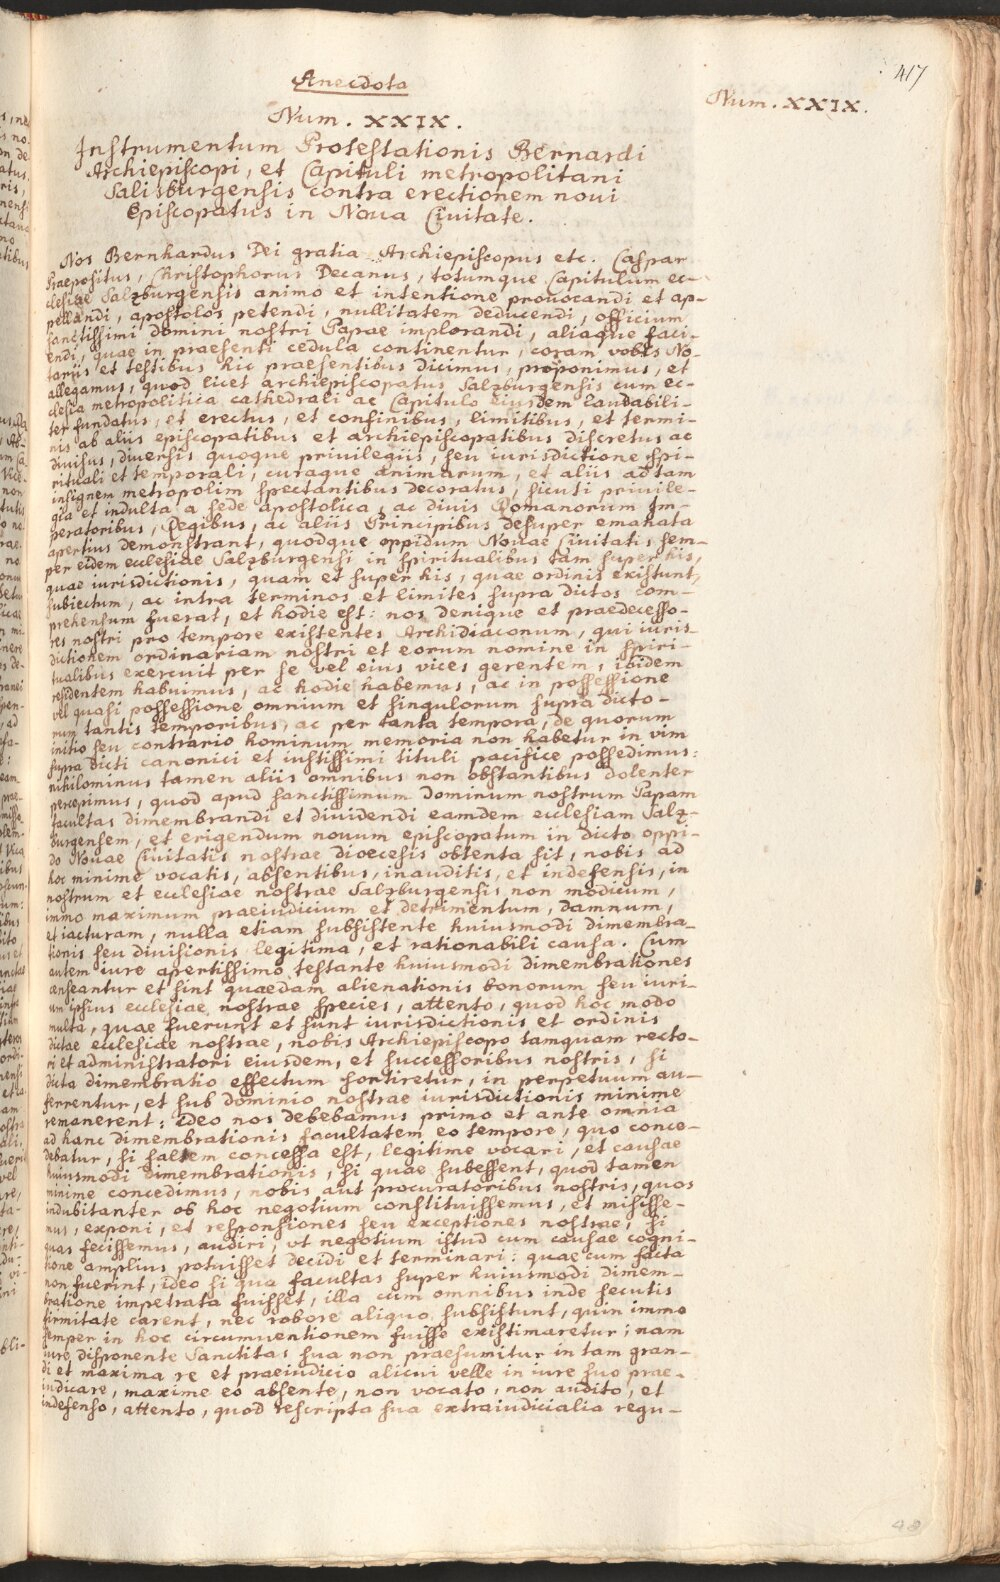 417
Anecdota
Num. XXIX.
Num. XXIX.
Instrumentum Protestationis Bernardi
Archiepiscopi, et Capituli metropolitani
Salisburgensis contra erectionem novi
Episcopatus in Nova Civitate.
Nos Bernhardus Dei gratia Archiepiscopus etc. Caspar
Praepositus, Christophorus Decanus, totumque Capitulum ec-
clesiae Salzburgensis animo et intentione provocandi et ap-
pellandi, apostolos petendi, nullitatem deducendi, officium
sanctissimi domini nostri Papae implorandi, aliaque faci-
endi, quae in praesenti cedula continentur, coram vobis No-
tariis et testibus hic praesentibus dicimus, proponimus, et
allegamus, quod licet archiepiscopatus Salzburgensis cum ec-
clesia metropolitica cathedrali ac Capitulo eiusdem laudabili-
ter fundatus, et erectus, et confinibus, limitibus, et termi-
nis ab aliis episcopatibus et archiepiscopatibus discretus ac
divisus, diversis quoque privilegiis, seu iurisdictione spi-
rituali et temporali, curaque animarum, et aliis ad tam
insignem metropolim spectantibus decoratus, sicuti privile-
gia et indulta a sede apostolica, ac divis Romanorum Im-
peratoribus, Regibus, ac aliis Principibus desuper emanata
apertius demonstrant, quodque oppidum Novae Civitatis sem-
per eidem ecclesiae Salzburgensi in spiritualibus tam super his,
quae iurisdictionis, quam et super his, quae ordinis existunt,
subiectum, ac intra terminos et limites supra dictos com-
prehensum fuerat, et hodie est: nos denique et praedecesso-
res nostri pro tempore existentes Archidiaconum, qui iuris-
dictionem ordinariam nostri et eorum nomine in spiri-
tualibus exercuit per se vel eius vices gerentem, ibidem
residentem habuimus, ac hodie habemus, ac in possessione
vel quasi possessione omnium et singulorum supra dicto-
rum tantis temporibus, ac per tanta tempora, de quorum
initio seu contrario hominum memoria non habetur in vim
supra dicti canonici et iustissimi tituli pacifice possedimus:
nihilominus tamen aliis omnibus non obstantibus dolenter
percepimus, quod apud sanctissimum dominum nostrum Papam
facultas dimembrandi et dividendi eamdem ecclesiam Salz-
burgensem, et erigendum novum episcopatum in dicto oppi-
do Novae Civitatis nostrae dioecesis obtenta sit, nobis ad
hoc minime vocatis, absentibus, inauditis, et indefensis, in
nostrum et ecclesiae nostrae Salzburgensis non modicum,
immo maximum praeiudicium et detrimentum, damnum,
et iacturam, nulla etiam subsistente huiusmodi dimembra-
tionis seu divisionis legitima, et rationabili causa. Cum
autem iure apertissimo testante huiusmodi dimembrationes
censeantur et sint quaedam alienationis bonorum seu iuri-
um ipsius ecclesiae nostrae species, attento, quod hoc modo
multa, quae fuerunt et sunt iurisdictionis et ordinis
dictae ecclesiae nostrae, nobis Archiepiscopo tamquam recto-
ri et administratori eiusdem, et successoribus nostris, si
dicta dimembratio effectum sortiretur, in perpetuum au-
ferrentur, et sub dominio nostrae iurisdictionis minime
remanerent; ideo nos debebamus primo et ante omnia
ad hanc dimembrationis facultatem eo tempore, quo conce-
debatur, si saltem concessa est, legitime vocari, et causae
huiusmodi dimembrationis, si quae subessent, quod tamen
minime concedimus, nobis aut procuratoribus nostris, quos
indubitanter ob hoc negotium constituissemus, et misisse-
mus, exponi, et responsiones seu exceptiones nostrae, si
quas fecissemus, audiri, vt negotium istud cum causae cogni-
tione amplius potuisset decidi et terminari: quae cum facta
non fuerint, ideo si qua facultas super huiusmodi dimem-
bratione impetrata fuisset, illa cum omnibus inde secutis
firmitate carent, nec robore aliquo subsistunt, quin immo
semper in hoc circumventionem fuisse existimaretur; nam
iure disponente Sanctitas sua non praesumitur in tam gran-
di et maxima re et praeiudicio alicui velle in iure suo prae-
iudicare, maxime eo absente, non vocato, non audito, et
indefenso, attento, quod rescripta sua extraiudicialia regu-